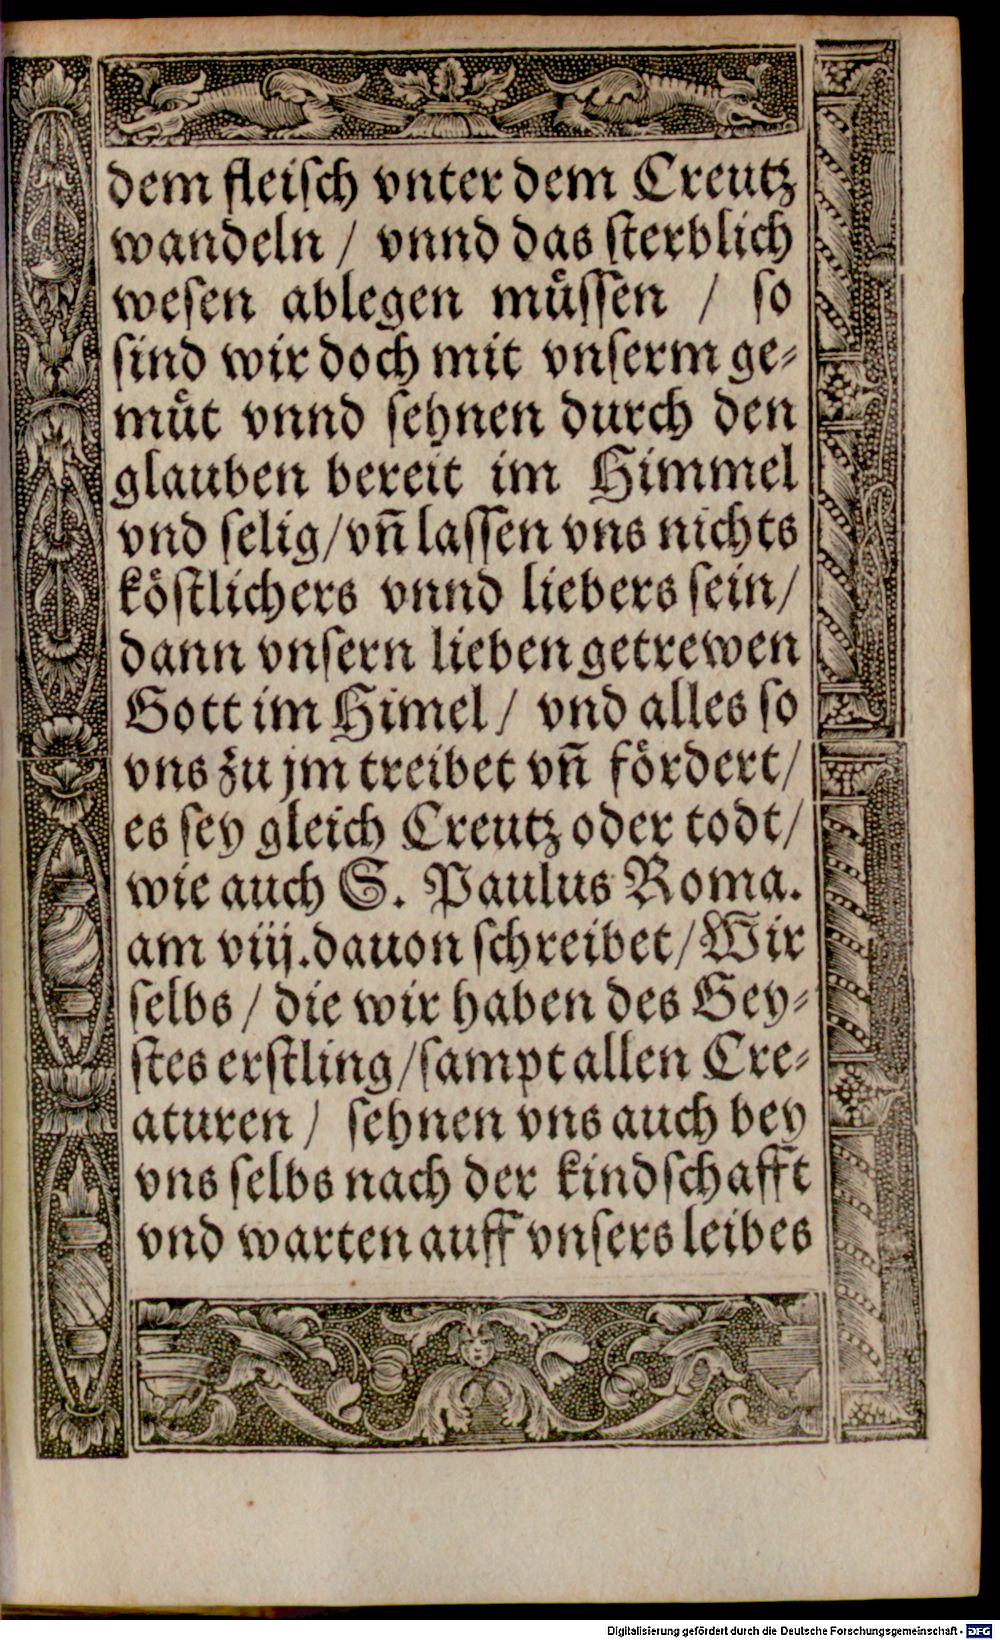 dem fleiſch vnter dem Creutz
wandeln / vnnd das ſterblich
weſen ablegen müſſen / ſo
ſind wir doch mit vnſerm ge⸗
müt vnnd ſehnen durch den
glauben bereit im Himmel
vnd ſelig/ vñ laſſen vns nichts
köſtlichers vnnd liebers ſein/
dann vnſern lieben getrewen
Gott im Himel / vnd alles ſo
vns zu jm treibet vñ fördert/
es ſey gleich Creutz oder todt/
wie auch S. Paulus Roma.
am viij. dauon ſchreibet/ Wir
ſelbs / die wir haben des Gey⸗
ſtes erſtling/ ſampt allen Cre⸗
aturen / ſehnen vns auch bey
vns ſelbs nach der kindſchafft
vnd warten auff vnſers leibes
Digitalisierung gefördert durch die Deutsche Forschungsgemeinschaft - DFG